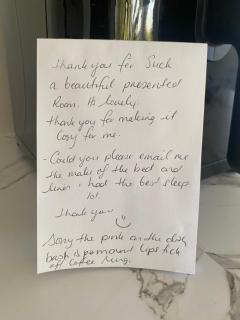 Thank you for Such
a beautiful presented
Room. Its lovely.
thank you for making it
Cosy for me.
- Could you please email me
the make of the bed and
linen i had the best sleep
lol.
Thank you
Sorry the pink on the dish
is permanent lipstick
off coffee mug.